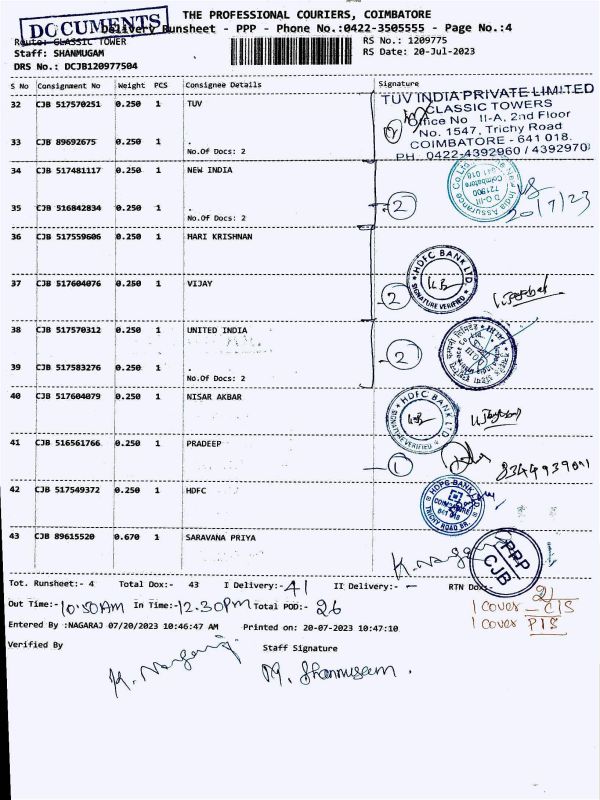 DOCUMENTS
THE PROFESSIONAL COURIERS, COIMBATORE
Delivery Runsheet - PPP - Phone No.:0422-3505555 - Page No.:4
Route: CLASSIC TOWER
RS No.: 1209775
Staff: SHANMUGAM
RS Date: 20-Jul-2023
DRS No.: DCJB120977504
S No Consignment No Weight PCS Consignee Details Signature
32 CJB 517570251 0.250 1 TUV
TUV INDIA PRIVATE LIMITED
CLASSIC TOWERS
Office No II-A, 2nd Floor
No. 1547, Trichy Road
COIMBATORE - 641 018.
PH. 0422-4392960 / 4392970
2
33 CJB 89692675 0.250 1 .
No.Of Docs: 2
34 CJB 517481117 0.250 1 NEW INDIA
2
20/7/23
35 CJB 516842834 0.250 1 .
No.Of Docs: 2
36 CJB 517559606 0.250 1 HARI KRISHNAN
HDFC BANK LTD.
SIGNATURE VERIFIED
37 CJB 517604076 0.250 1 VIJAY
2
38 CJB 517570312 0.250 1 UNITED INDIA
2
39 CJB 517583276 0.250 1 .
No.Of Docs: 2
40 CJB 517604079 0.250 1 NISAR AKBAR
HDFC BANK LTD.
SIGNATURE VERIFIED
41 CJB 516561766 0.250 1 PRADEEP
1
42 CJB 517549372 0.250 1 HDFC
HDFC BANK LTD
COIMBATORE
641 018
TRICHY ROAD BR.
43 CJB 89615520 0.670 1 SARAVANA PRIYA
K. Nagaraj
PPP
CJB
Tot. Runsheet:- 4 Total Dox:- 43 I Delivery:- 41 II Delivery:- - RTN Dox:- 2
Out Time:- 10:50AM In Time:- 12.30PM Total POD:- 26
1 cover - CIS
1 cover PIS
Entered By :NAGARAJ 07/20/2023 10:46:47 AM Printed on: 20-07-2023 10:47:10
Verified By Staff Signature
K. Nagaraj
M. Shanmugam.